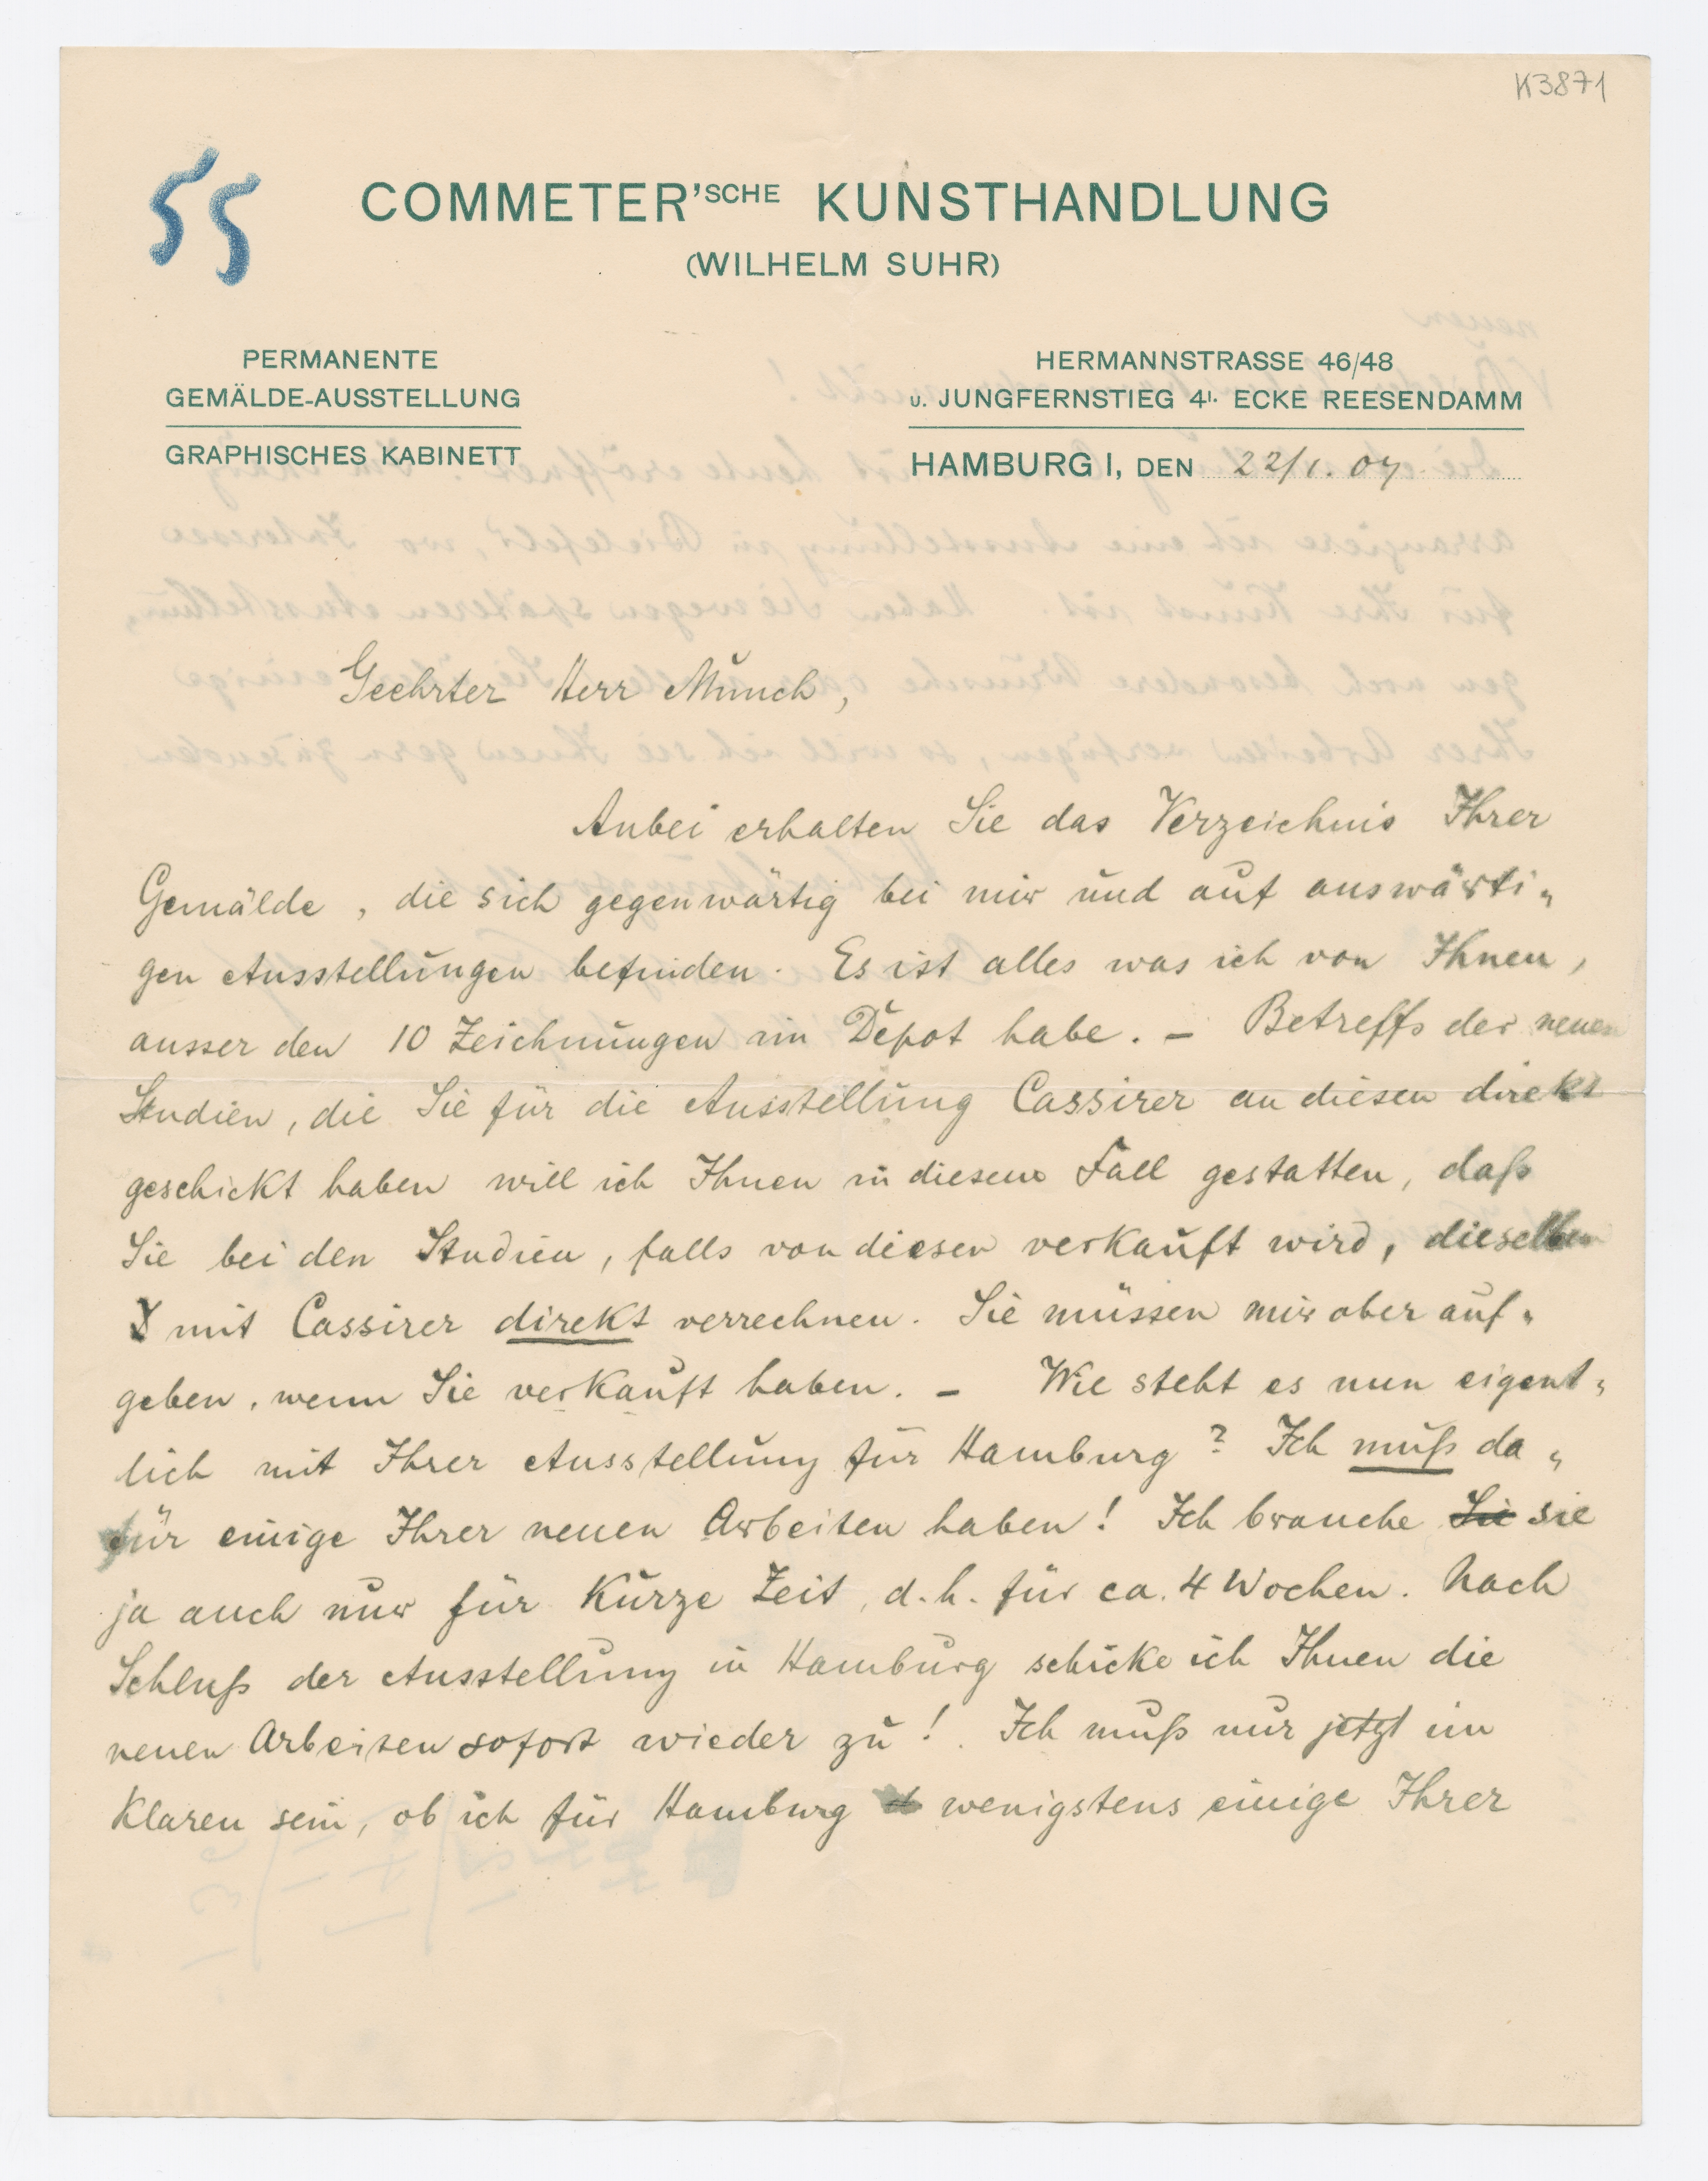 K3871
55
COMMETER'SCHE KUNSTHANDLUNG
(WILHELM SUHR)
PERMANENTE
GEMÄLDE-AUSSTELLUNG
GRAPHISCHES KABINETT
HERMANNSTRASSE 46/48
u. JUNGFERNSTIEG 4I. ECKE REESENDAMM
HAMBURG I, DEN 22/1. 07
Geehrter Herr Munch,
Anbei erhalten Sie das Verzeichnis Ihrer
Gemälde, die sich gegenwärtig bei mir und auf auswärti„
gen Ausstellungen befinden. Es ist alles was ich von Ihnen,
ausser den 10 Zeichnungen im Depot habe. – Betreffs der neuen
Studien, die Sie für die Ausstellung Cassirer an diesen direkt
geschickt haben will ich Ihnen in diesem Fall gestatten, daß
Sie bei den Studien, falls von diesen verkauft wird, dieselben
mit Cassirer direkt verrechnen. Sie müssen mir aber auf„
geben, wenn Sie verkauft haben. – Wie steht es nun eigent„
lich mit Ihrer Ausstellung für Hamburg? Ich muß da„
für einige Ihrer neuen Arbeiten haben! Ich brauche Sie sie
ja auch nur für kurze Zeit, d.h. für ca. 4 Wochen. Nach
Schluß der Ausstellung in Hamburg schicke ich Ihnen die
neuen Arbeiten sofort wieder zu! Ich muß nur jetzt im
Klaren sein, ob ich für Hamburg wenigstens einige Ihrer